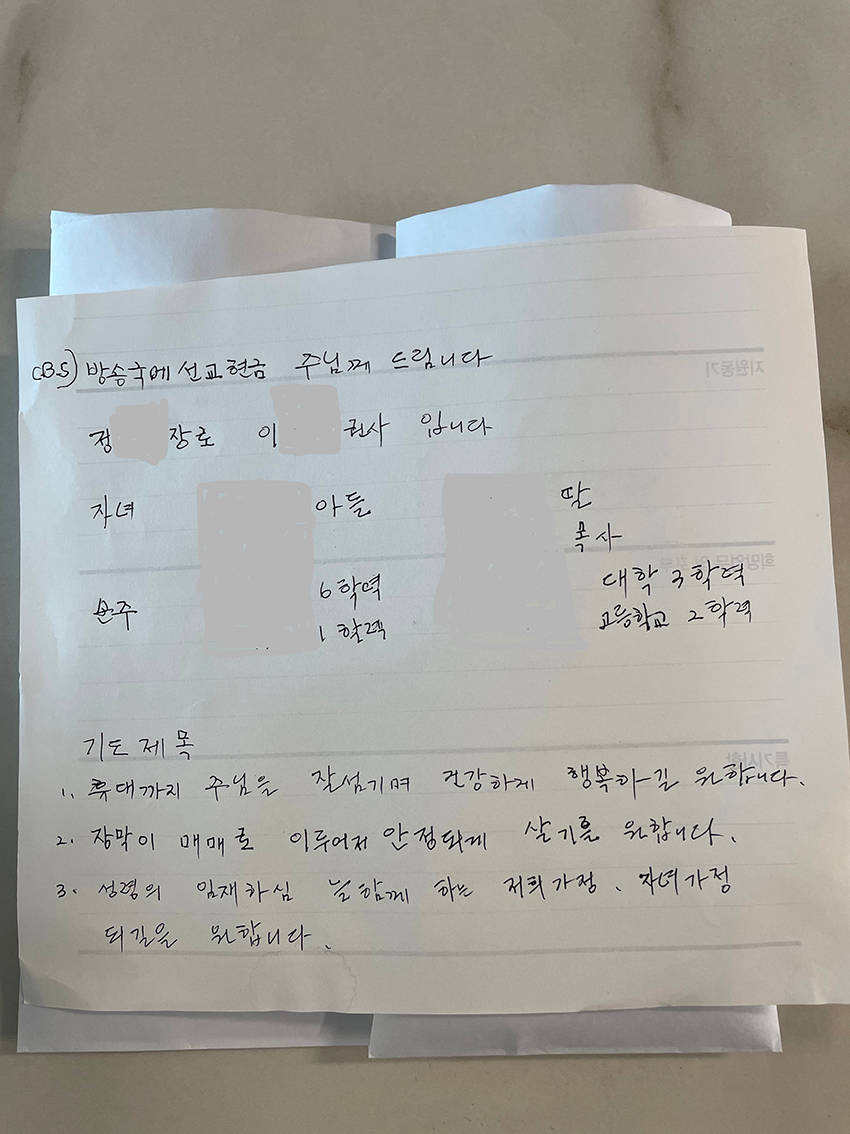 CBS) 방송국에 선교헌금 주님께 드립니다
정 장로 이 권사 입니다
자녀 아들 딸
목사
손주 6학력 대학 3학력
1학력 고등학교 2학력
기도 제목
1. 휴대까지 주님을 잘섬기며 건강하게 행복하길 원합니다.
2. 장막이 매매로 이루어저 안정되게 살기를 원합니다.
3. 성령의 임재하심 늘함께 하는 저희가정. 자녀가정
되길을 원합니다.
지원동기
특기사항